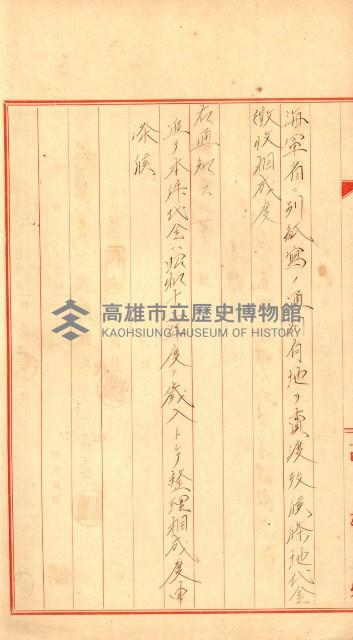 海軍省ニ別紙寫ノ通市有地ヲ賣渡致候條地代金
徴收相成度
右通知ス
追テ本件代金ハ昭和十年度ノ歲入トシテ整理相成度申
添候
高雄市立歷史博物館
KAOHSIUNG MUSEUM OF HISTORY